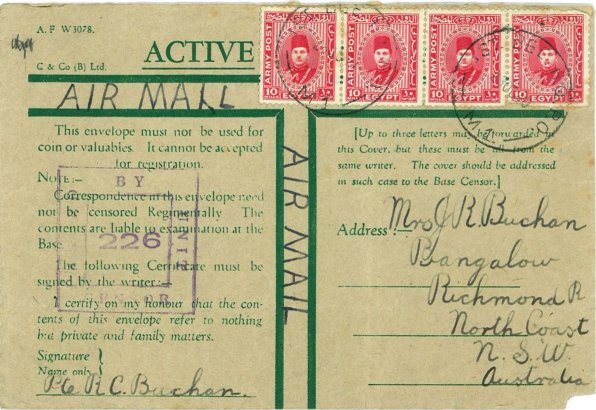 A. F W3078.
C & Co (B) Ltd.
ACTIVE
ARMY POST
10
EGYPT
ARMY POST
10
EGYPT
ARMY POST
10
EGYPT
ARMY POST
10
EGYPT
AIR MALL
AIR MAIL
This envelope must not be used for
coin or valuables. It cannot be accepted
for registration.
NOTE:—
Correspondence in this envelope need
not be censored Regimentally. The
contents are liable to examination at the
Base.
The following Certificate must be
signed by the writer:—
I certify on my honour that the con-
tents of this envelope refer to nothing
but private and family matters.
Signature
Name only
Pte R. C. Buchan.
BY
226
[Up to three letters may be forwarded in
this Cover, but these must be all from the
same writer. The cover should be addressed
in such case to the Base Censor.]
Address:—
Mrs J. R. Buchan
Bangalow
Richmond R
North Coast
N. S. W.
Australia